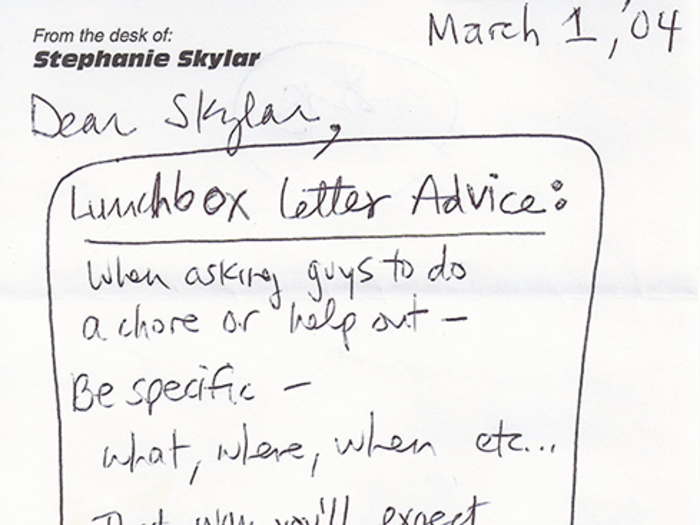 March 1, '04
From the desk of:
Stephanie Skylar
Dear Skylar,
Lunchbox Letter Advice:
When asking guys to do
a chore or help out –
Be specific –
what, where, when etc...
That way you'll expect